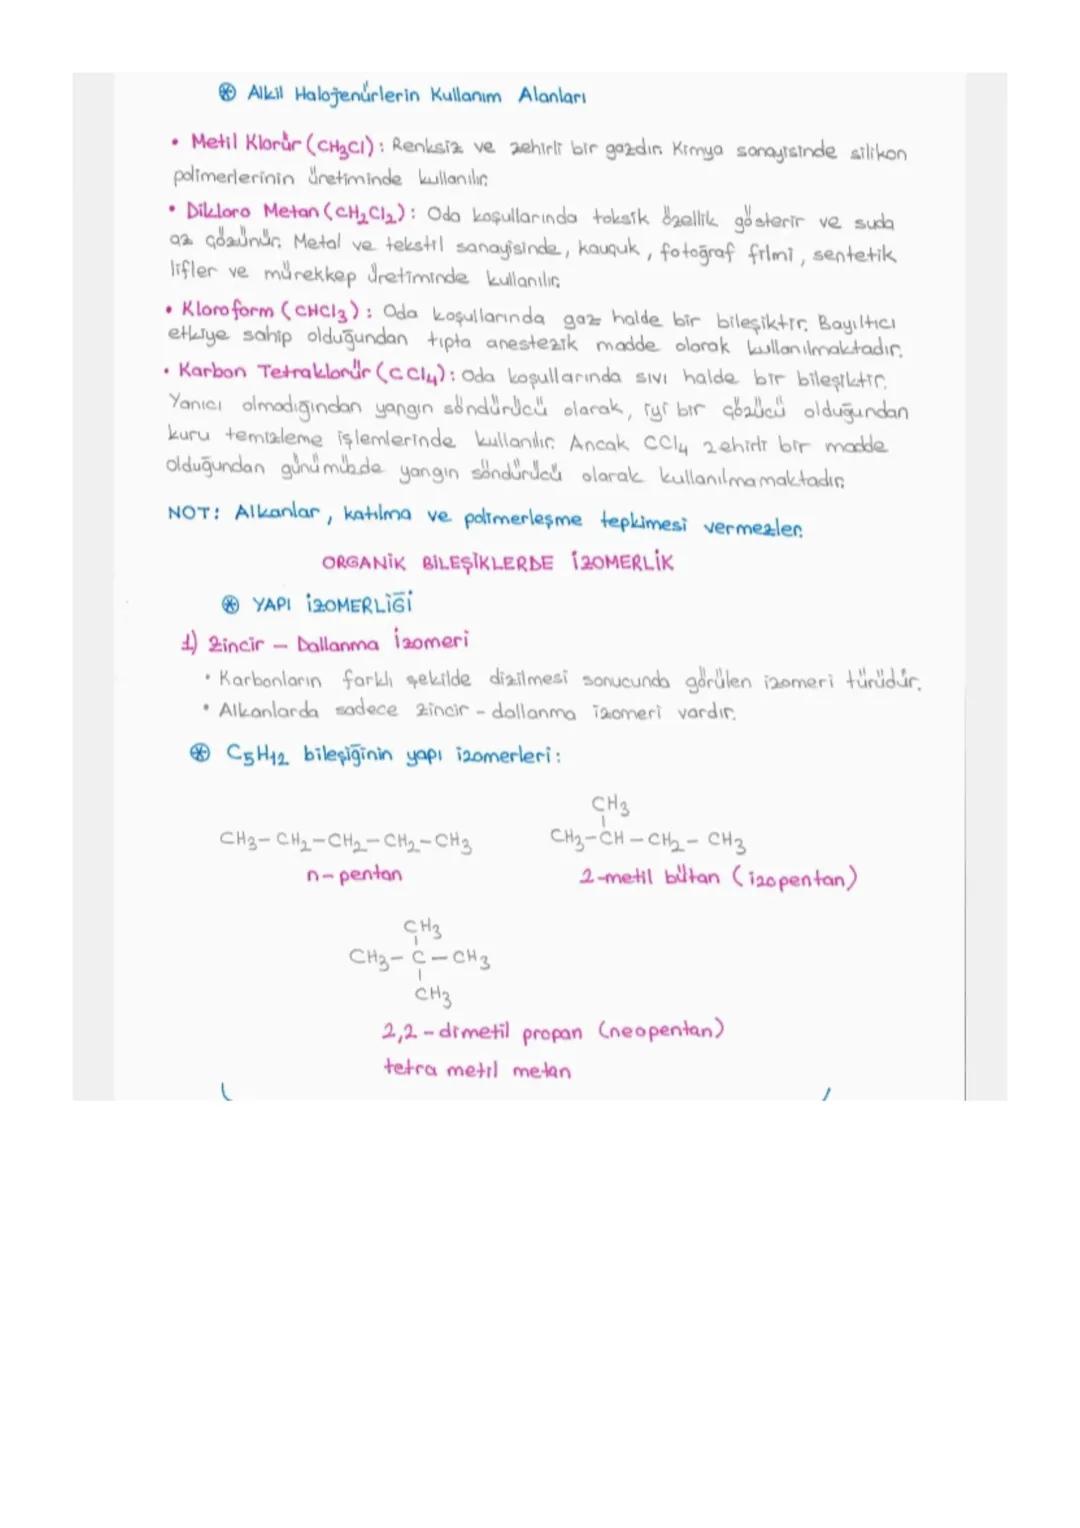 ⊛ Alkil Halojenürlerin Kullanım Alanları
• Metil Klorür (CH₃Cl): Renksiz ve zehirli bir gazdır. Kimya sanayisinde silikon
polimerlerinin üretiminde kullanılır.
• Dikloro Metan (CH₂Cl₂): Oda koşullarında toksik özellik gösterir ve suda
az çözünür. Metal ve tekstil sanayisinde, kauçuk, fotoğraf filmi, sentetik
lifler ve mürekkep üretiminde kullanılır.
• Kloroform (CHCl₃): Oda koşullarında gaz halde bir bileşiktir. Bayıltıcı
etkiye sahip olduğundan tıpta anestezik madde olarak kullanılmaktadır.
• Karbon Tetraklorür (CCl₄): Oda koşullarında sıvı halde bir bileşiktir.
Yanıcı olmadığından yangın söndürücü olarak, iyi bir çözücü olduğundan
kuru temizleme işlemlerinde kullanılır. Ancak CCl₄ zehirli bir madde
olduğundan günümüzde yangın söndürücü olarak kullanılmamaktadır.
NOT: Alkanlar, katılma ve polimerleşme tepkimesi vermezler.
ORGANİK BİLEŞİKLERDE İZOMERLİK
⊛ YAPI İZOMERLİĞİ
1) Zincir - Dallanma İzomeri
• Karbonların farklı şekilde dizilmesi sonucunda görülen izomeri türüdür.
• Alkanlarda sadece zincir - dallanma izomeri vardır.
⊛ C₅H₁₂ bileşiğinin yapı izomerleri:
CH₃
CH₃-CH₂-CH₂-CH₂-CH₃ CH₃-CH-CH₂-CH₃
n-pentan 2-metil bütan (izopentan)
CH₃
CH₃-C-CH₃
CH₃
2,2-dimetil propan (neopentan)
tetra metil metan